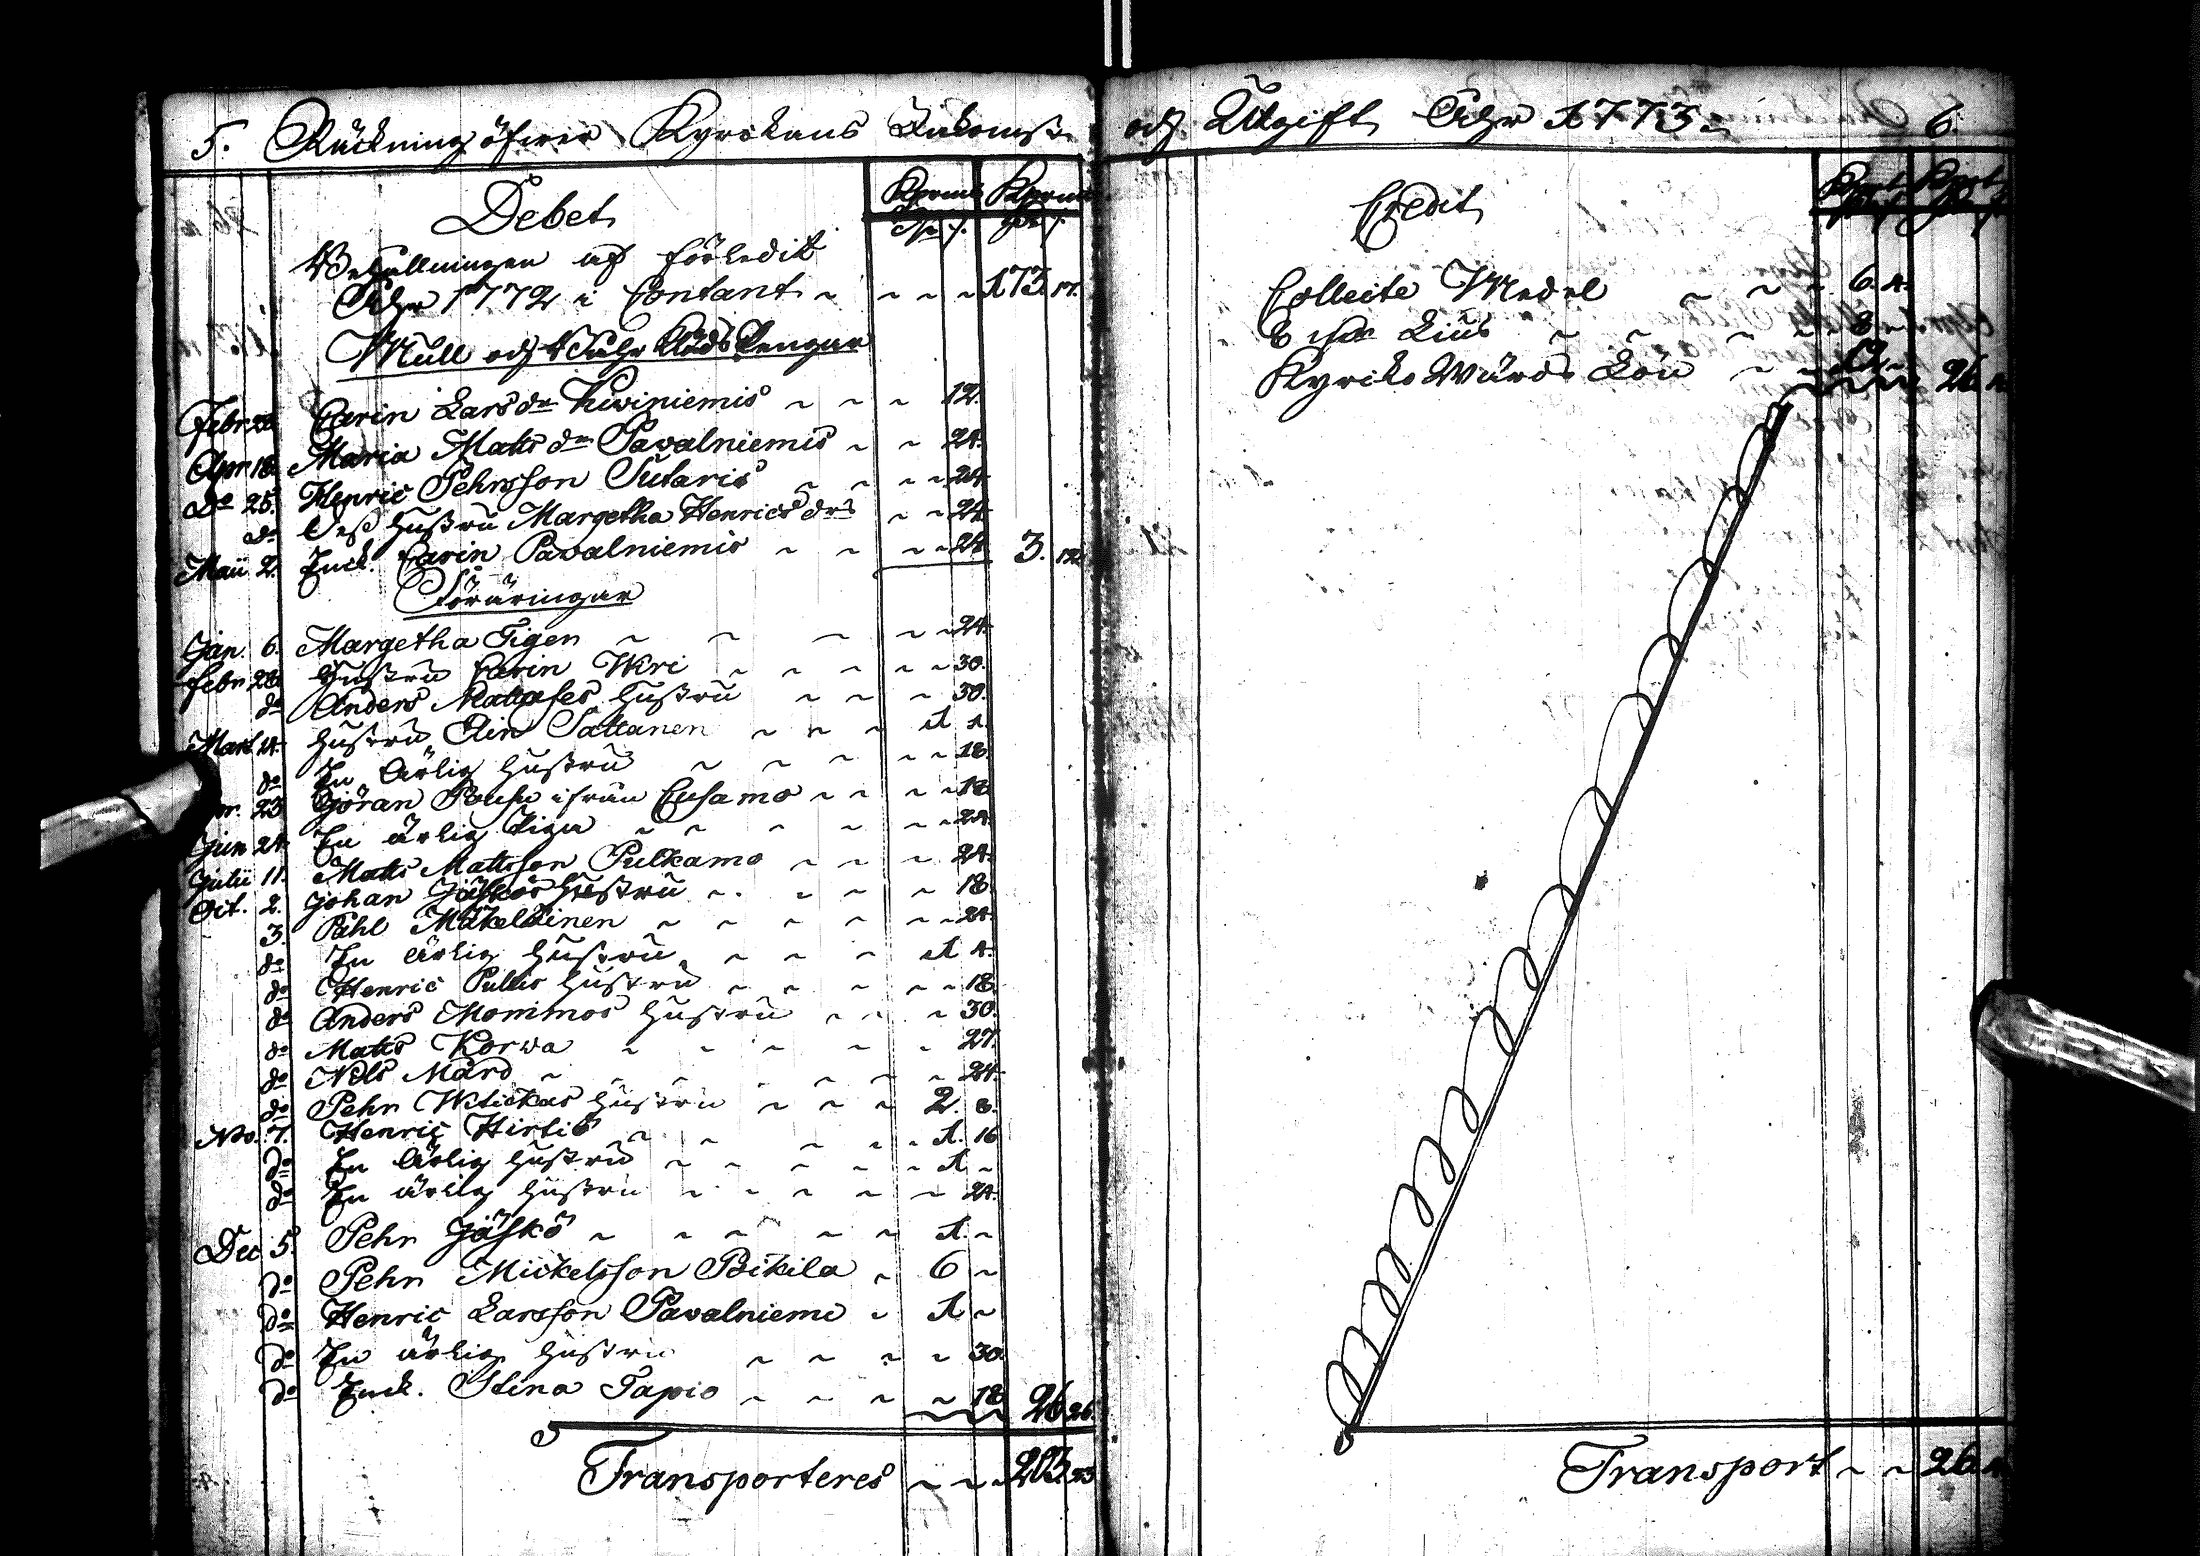 5. Räckning öfwer Kyrckans Inkomst
Debet
Behållningen af förledit
Åhr 1772 i Contant ~ ~ ~ ~ 173. 17.
Mull och Bahr Kläds Pengar
Febr. 28 Carin Lars dr Kiviniemis ~ ~ ~ 12.
Apr 18. Maria Matts dr Pavalniemis ~ ~ 24.
Do 25. Henric Pehrsson Sutaris ~ ~ ~ 24.
do Dess Hustru Margetha Henrics drs ~ ~ 24.
Maii 2. Enck. Carin Pavalniemis ~ ~ ~ 24. 3. 12.
Föräringar
Jan. 6. Margetha Tigen ~ ~ ~ ~ 24.
Febr 28. Hustru Carin ~ ~ ~ ~ 30.
do Anders Hustru ~ ~ ~ 30.
Mart 14. Hustru Elin Sattanen ~ ~ ~ 1 4.
do En Ärlig Hustru ~ ~ ~ ~ 18.
23 Göran ifrån Cusamo ~ ~ ~ 18
Jun 24. En ärlig Piga ~ ~ ~ ~ ~ 24.
Julii 11. Matts Mattsson Pulkamo ~ ~ ~ 24.
Oct. 2. Johan Jäskös Hustru ~ ~ ~ ~ 18.
3. Påhl Mäkeläinen ~ ~ ~ ~ 24.
do En Ärlig Hustru ~ ~ ~ 1 4.
do Henric Hustru ~ ~ ~ ~ 18.
do Anders Mommos Hustru ~ ~ ~ 30.
do Matts Korwa ~ ~ ~ ~ ~ 27.
do Nils Mård ~ ~ ~ ~ ~ 24.
do Pehr Hustru ~ ~ ~ 2. 8.
No. 7. Henric Hirtis ~ ~ ~ ~ 1. 16
do En Ärlig Hustru ~ ~ ~ ~ 1 ~
do En ärlig Hustru ~ ~ ~ ~ ~ 24.
Dec 5. Pehr Jäskö ~ ~ ~ ~ ~ 1. ~
do Pehr Mickelsson Påikila ~ 6 ~
do Henric Larsson Pavalniemi ~ 1 ~
do En ärlig Hustru ~ ~ ~ ~ 30.
do Enck. Stina Tapio ~ ~ ~ ~ 18 26 26.
Transporteres ~ ~ ~ 203 23
och Utgift Åhr 1773. 6.
Credit
Collecte Medel ~ ~ ~ 6. 4.
Lius ~ ~ ~ ~ 8
Kyrcko Wärds Lön ~ ~ 26
Transport ~ ~ 26